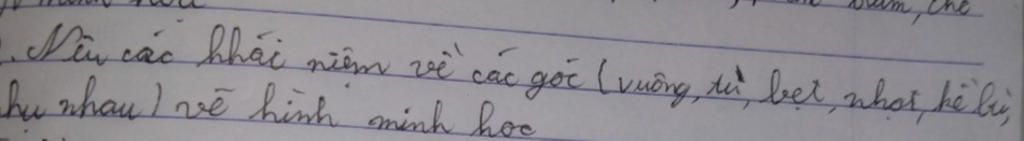 trảm, chế
. Nêu các khái niệm về các góc (vuông, tù, bẹt, nhọt, kề bù,
hụ nhau) vẽ hình minh hoc